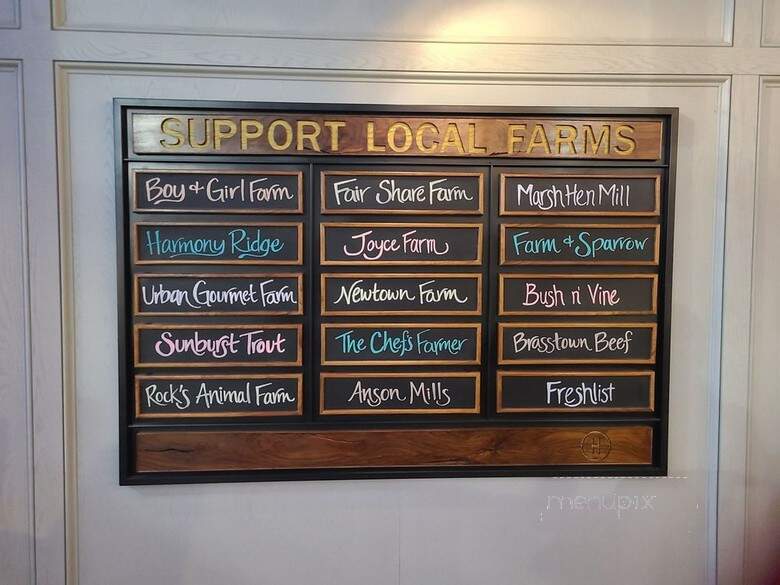 SUPPORT LOCAL FARMS
Boy & Girl Farm
Harmony Ridge
Urban Gourmet Farm
Sunburst Trout
Rock's Animal Farm
Fair Share Farm
Joyce Farm
Newtown Farm
The Chef's Farmer
Anson Mills
Marsh Hen Mill
Farm & Sparrow
Bush n' Vine
Brasstown Beef
Freshlist
H
menupix